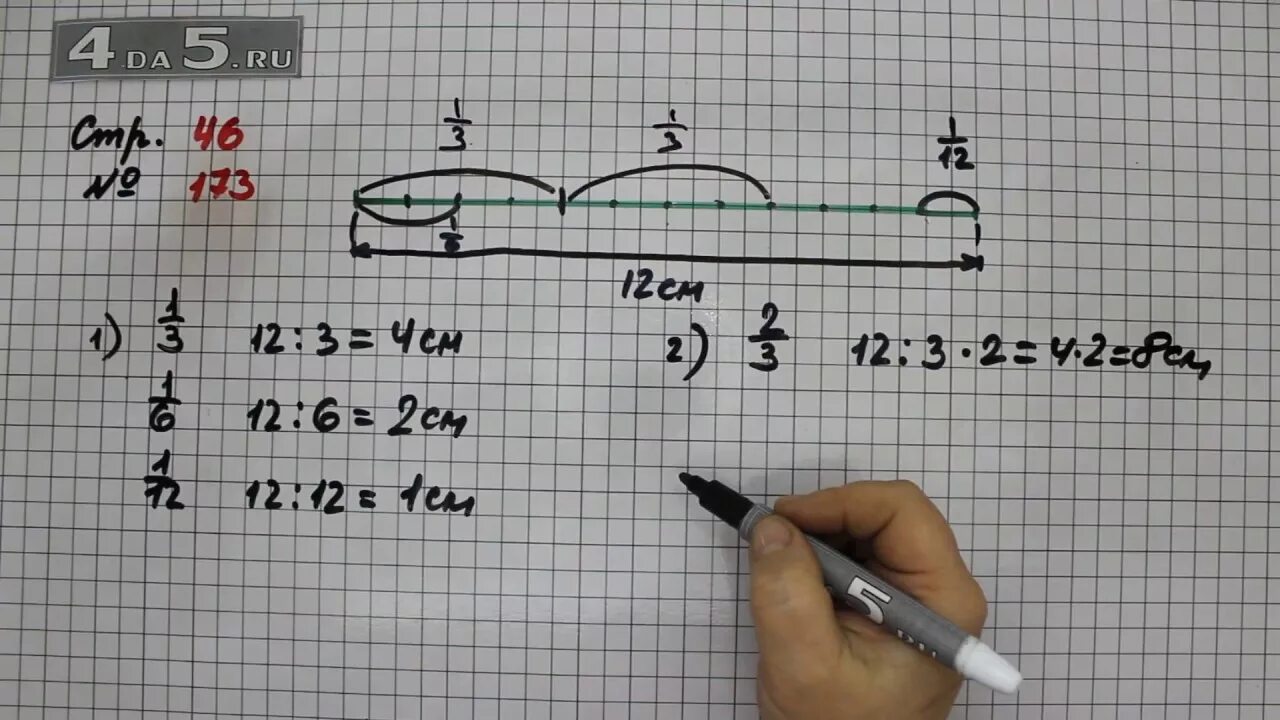 4DA5.RU
Стр. 46
№ 173
1/3 1/3 1/12
1/6
12см
1) 1/3 12 : 3 = 4см
1/6 12 : 6 = 2см
1/12 12 : 12 = 1см
2) 2/3 12 : 3 · 2 = 4 · 2 = 8см
5.RU